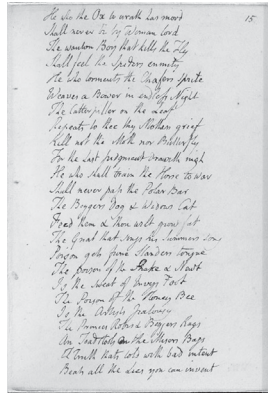 15
He who the Ox to wrath has movd
Shall never be by Woman lovd
The wanton Boy that kills the Fly
Shall feel the Spiders enmity
He who torments the Chafers Sprite
Weaves a Bower in endless Night
The Catterpiller on the Leaf
Repeats to thee thy Mothers grief
Kill not the Moth nor Butterfly
For the Last Judgment draweth nigh
He who shall train the Horse to war
Shall never pass the Polar Bar
The Beggers Dog & Widows Cat
Feed them & thou wilt grow fat
The Gnat that sings his Summers Song
Poison gets from Slanders tongue
The poison of the Snake & Newt
Is the sweat of Envys Foot
The Poison of the Honey Bee
Is the Artists Jealousy
The Princes Robes & Beggers Rags
Are Toadstools on the Misers Bags
A Truth thats told with bad intent
Beats all the Lies you can invent